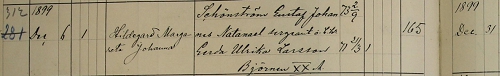 312 1899 Schönström Gustaf Johan 73 2/9 1899
281 Dec, 6 1 Hildegard Marga- nes Natanael sergeant o. h. 165 Dec 31
reta Johanna Gerda Ulrika Larsson 71 21/3 1
Björnen XX A